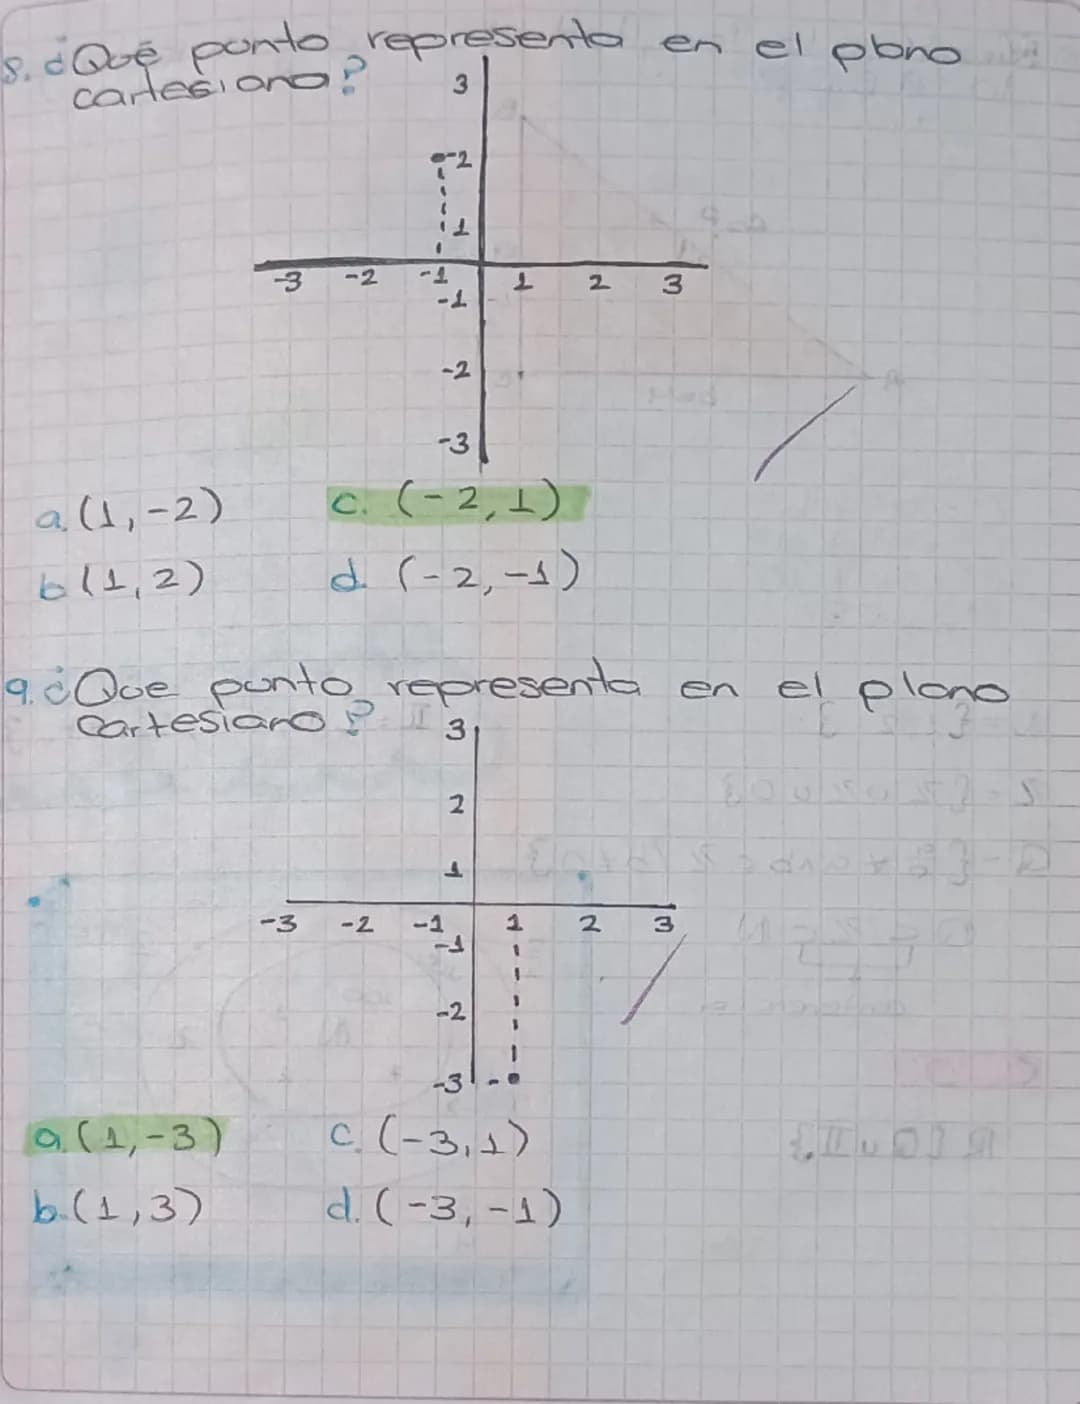 8. ¿Qué punto representa en el plano
cartesiano?
3
-2
1
-3 -2 -1 1 2 3
-1
-2
-3
a. (1,-2) c. (-2,1)
b (1,2) d. (-2,-1)
9. ¿Que punto representa en el plano
cartesiano?
3
2
1
-3 -2 -1 1 2 3
-1
-2
-3
a. (1,-3) c. (-3,1)
b. (1,3) d. (-3,-1)